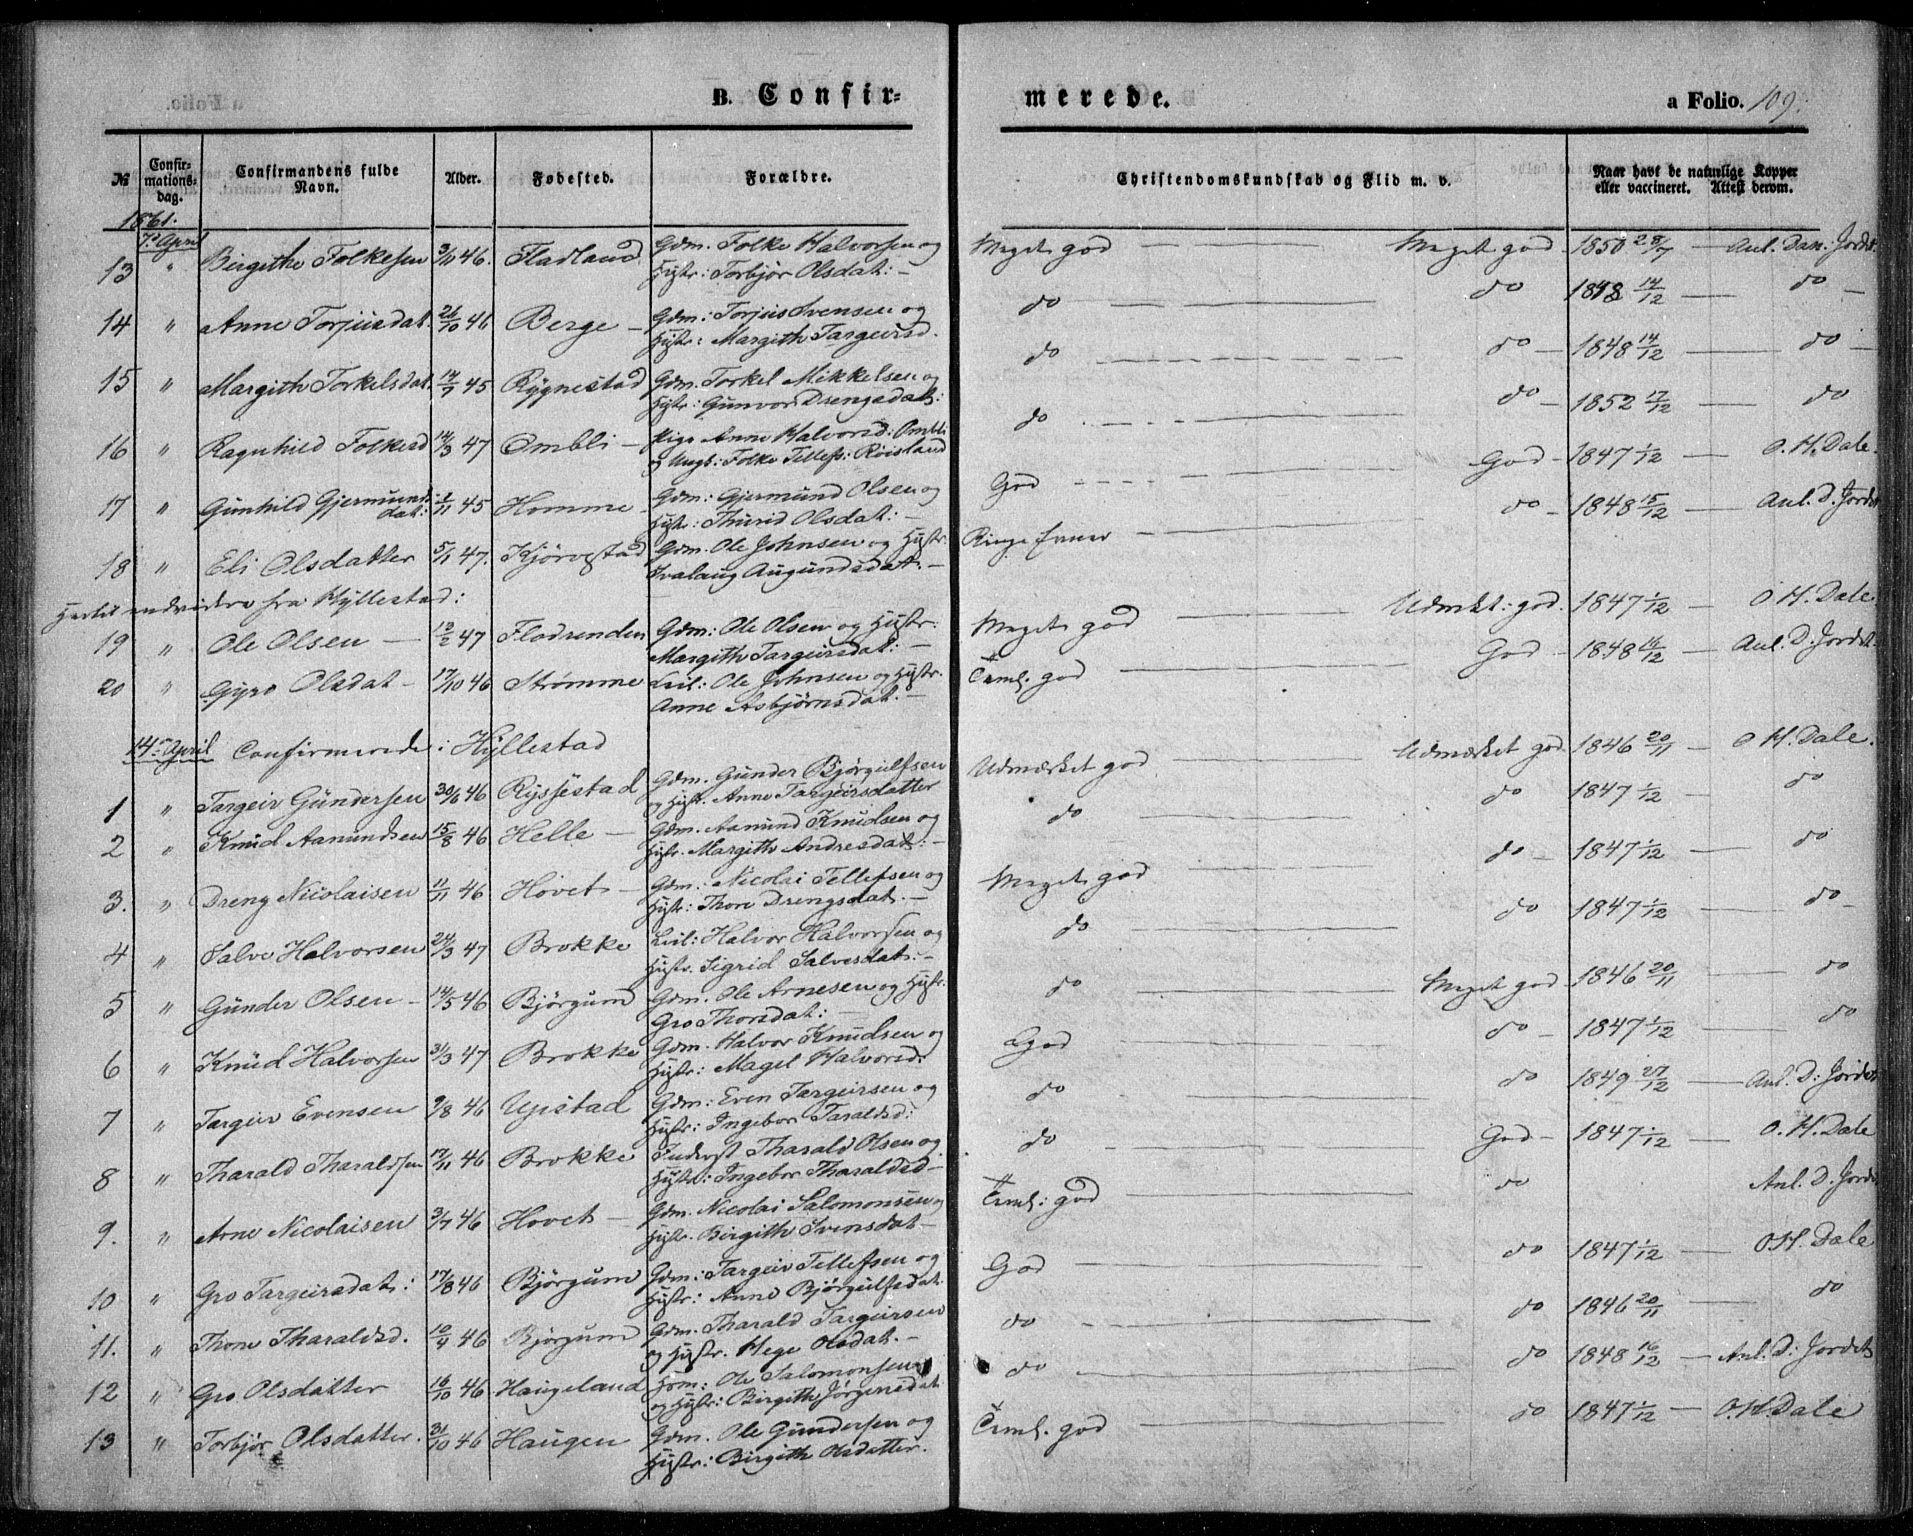 B. Confir=
merede.
a Folio. 109.
№
Confir=
mations=
dag.
Confirmandens fulde
Navn.
Alder.
Fødested.
Forældre.
Christendomskundskab og Flid m. v.
Naar havt de naturlige Kopper
eller vaccineret. Attest derom.
1861.
7d April
13 " Birgithe Folkesen 3/10 46. Fladland Gdm. Folke Halvorsen og Meget god Meget god 1850 28/7 Anl. Dan: Jordet
Hustr: Torbjør Olsdat:
14 " Anne Torjusdat. 26/10 46 Berge Gdm: Torjus Svensen og do do 1848 14/12 do
Hustr: Margith Targeirsd.
15 " Margith Torkelsdat. 14/7 45 Rygnestad Gdm. Torkel Mikkelsen og do do 1848 14/12 do
Hustr: Gunvor Drengsdat:
16 " Ragnhild Folkesd 14/3 47 Ombli Pige Anne Halvorsd: Ombli do do 1852 17/12 do
og Ungk: Folke Tellefs: Røisland
17 " Gunhild Gjermunds 1/11 45 Homme Gdm: Gjermund Olsen og God God 1847 1/12 O. H. Dale.
dat: Hustr: Thurid Olsdat:
18 " Eli Olsdatter 5/1 47. Kjørvestad Gdm. Ole Johnsen og Hustr. Ringe Evner do 1848 15/12 Anl. D. Jordet
Svalaug Augundsdat.
fra Hyllestad:
19 " Ole Olsen 12/2 47 Flodrenden Gdm: Ole Olsen og Hustr: Meget god Udmkt: god. 1847 1/12 O H. Dale
Margith Targeirsdat:
20 " Gyro Olsdat 17/10 46 Strømme Leil: Ole Johnsen og Hustr. Teml. god God 1848 16/12 Anl. D: Jordet.
Anne Asbjørnsdat.
14de April Confirmerede i Hyllestad
1 " Targeir Gundersen 30/6 46 Ryssestad Gdm. Gunder Bjørgulfsen Udmærket god Udmærket god. 1846 20/11 O H. Dale.
og Hustr. Anne Targeirsdatter
2 " Knud Aamundsen 15/8 46 Helle Gdm. Aamund Knudsen og do do 1847 1/12 do
Hustr. Margith Andresdat:
3. " Dreng Nicolaisen 11/11 46 Hovet Gdm: Nicolai Tellefsen og Meget god do 1847 1/12 do
Hustr: Thore Drengsdat.
4 " Salve Halvorsen 24/3 47 Brokke Leil: Halvor Halvorsen og do do 1847 1/12 do
Hustr. Sigrid Salvesdat:
5 " Gunder Olsen 14/5 46 Bjørgum Gdm. Ole Arnesen og Hustr. do Meget god 1846 20/11 do
Gro Thorsdat:
6 " Knud Halvorsen 31/3 47 Brokke Gdm. Halvor Knudsen og God do 1847 1/12 do
Hustr: Magel Halvorsd:
7 " Targeir Evensen 9/8 46 Uppstad Gdm: Even Targeirsen og do do 1849 27/12 Anl. D: Jordet
Hustr: Ingebor Taraldsd:
8 " Tharald Tharaldsen 17/11 46 Brokke Inderst Tharald Olsen og do God 1847 1/12 O. H. Dale
Hustr: Ingebor Tharaldsd
9. " Arne Nicolaisen 3/7 46 Hovet Gdm. Nicolai Salomonsen og Teml: god do Anl. D. Jordet
Hustr. Birgith Svensdat
10 " Gro Targeirsdat: 17/8 46 Bjørgum Gdm: Targeir Tellefsen og God do 1847 1/12 O H. Dale
Hustr: Anne Bjørgulfsdat.
11. " Thone Tharaldsd. 10/4 46 Bjørgum Gdm. Tharald Targeirsen do do 1846 20/11 do
og Hustr. Hege Olsdat.
12 " Gro Olsdatter 16/10 46 Haugeland Hsm: Ole Salomonsen do do 1848 16/12 Anl. D: Jordet
og Hustr: Birgith Jørgensdat
13 " Torbjør Olsdatter. 31/10 46 Haugen Gdm. Ole Gundersen og Teml. god do 1847 1/12 O. H. Dale
Hustr: Birgith Olsdatter.